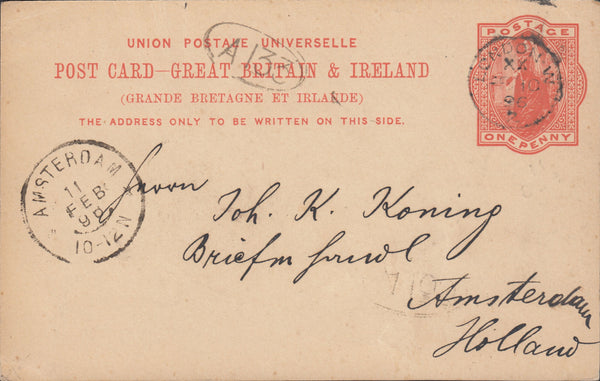 UNION POSTALE UNIVERSELLE
POST CARD—GREAT BRITAIN & IRELAND
(GRANDE BRETAGNE ET IRLANDE)
THE ADDRESS ONLY TO BE WRITTEN ON THIS SIDE.
POSTAGE
ONE PENNY
LONDON. W
AMSTERDAM
11
FEB
98
10-12N
Herrn
Joh. K. Koning
Briefm handl
Amsterdam
Holland